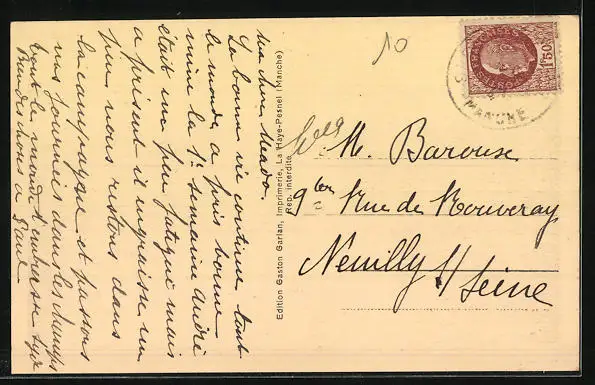 Ma chère Mado.
La bonne vie continue tout
le monde a pris bonne
mine la 1e semaine André
était un peu fatigué mais
a présent il engraisse un
peu nous restons dans
la campagne et passons
nos journées dans les champs
tout le monde t'embrasse
Paul
Edition Gaston Garlan, Imprimerie, La Haye-Pesnel (Manche)
Rep. interdite
10
M. Barouse
9 ter Rue de Rouvray
Neuilly s/
Seine
POSTES
1F50
MANCHE